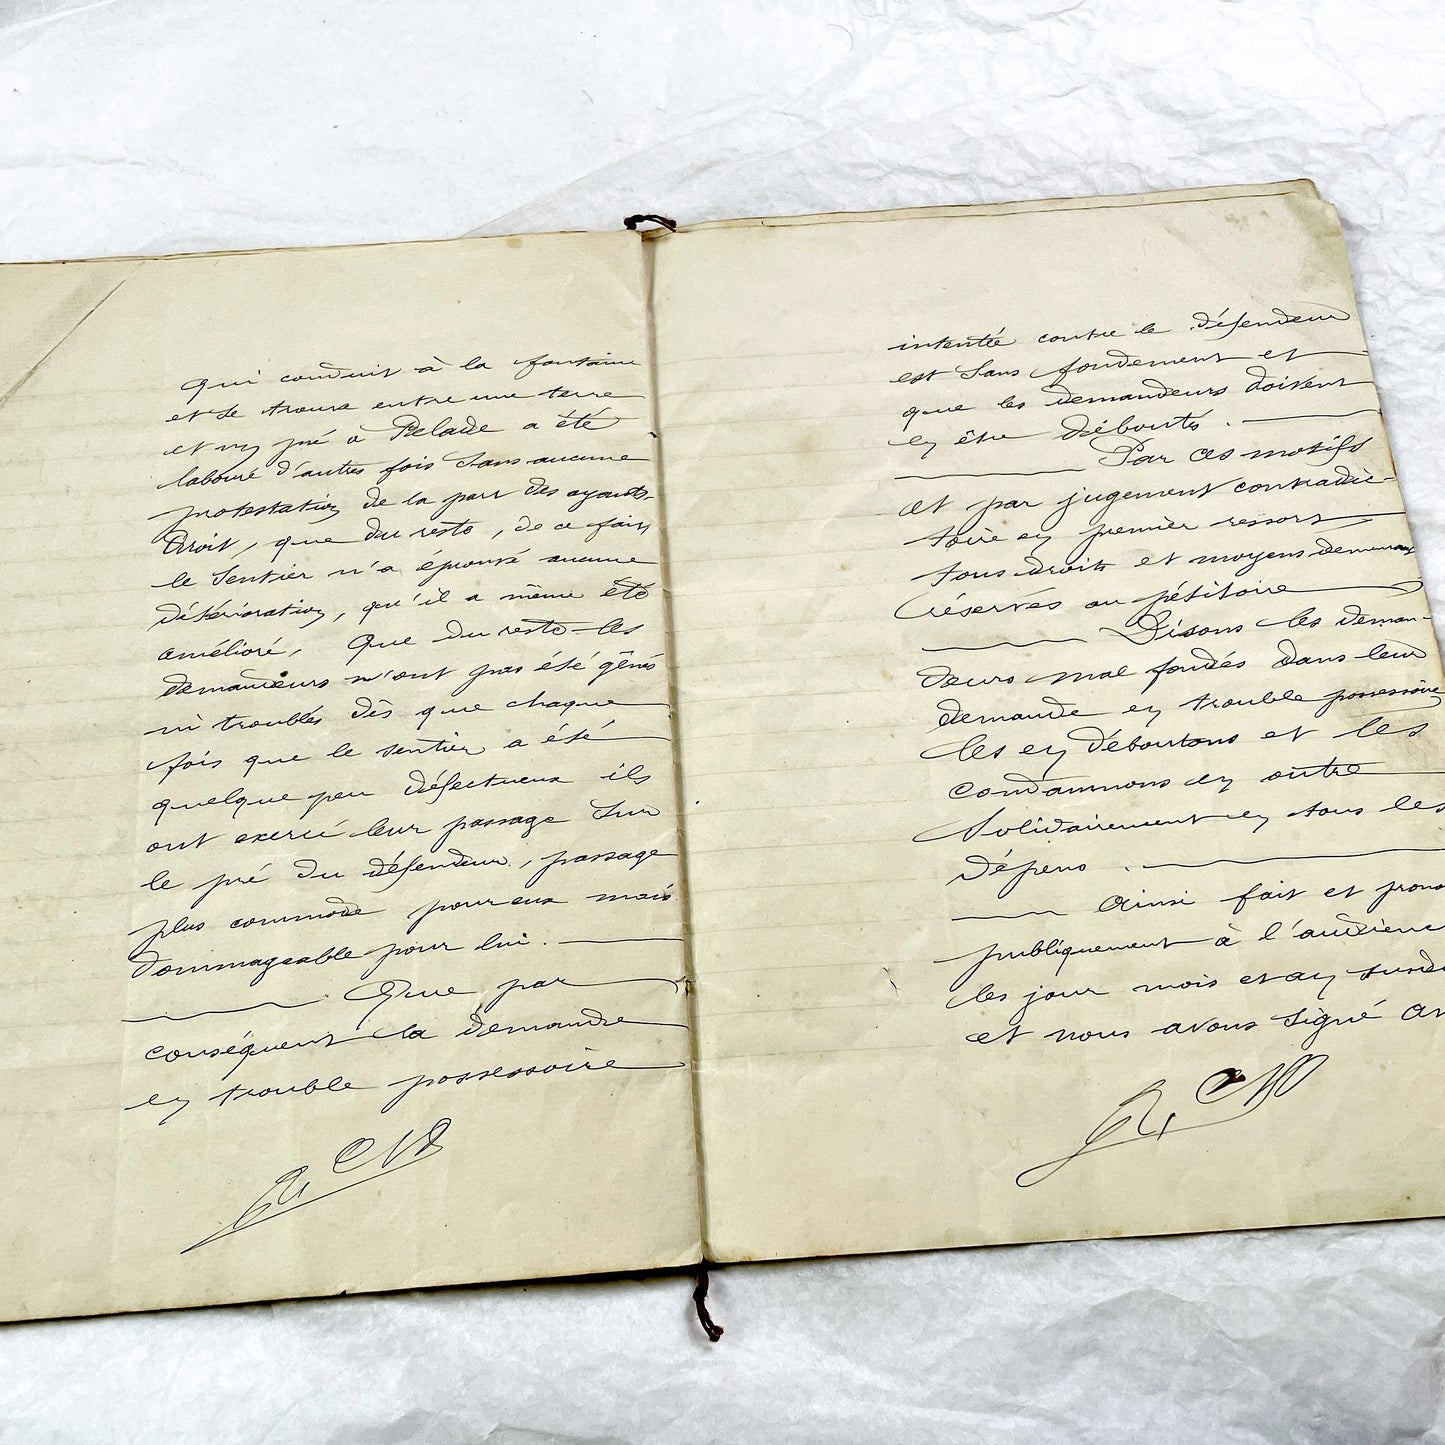 qui conduit à la fontaine
et se trouve entre une terre
et un pré à Pelade a été
labouré d'autres fois sans aucune
protestation de la part des ayants-
droit, que du reste, de ce fait
le sentier n'a éprouvé aucune
détérioration, qu'il a même été
amélioré, Que du reste les
demandeurs n'ont pas été gênés
ni troublés dès que chaque
fois que le sentier a été
quelque peu défectueux ils
ont exercé leur passage sur
le pré du défendeur, passage
plus commode pour eux mais
dommageable pour lui.
Que par
conséquent la demande
en trouble possessoire
intentée contre le défendeur
est sans fondement et
que les demandeurs doivent
en être déboutés.
Par ces motifs
et par jugement contradic-
toire en premier ressort
tous droits et moyens demeurant
réservés au pétitoire
Disons les deman-
deurs mal fondés dans leur
demande en trouble possessoire
les en déboutons et les
condamnons en outre
solidairement en tous les
dépens.
Ainsi fait et prono
publiquement à l'audienc
les jour mois et an susdi
et nous avons signé av